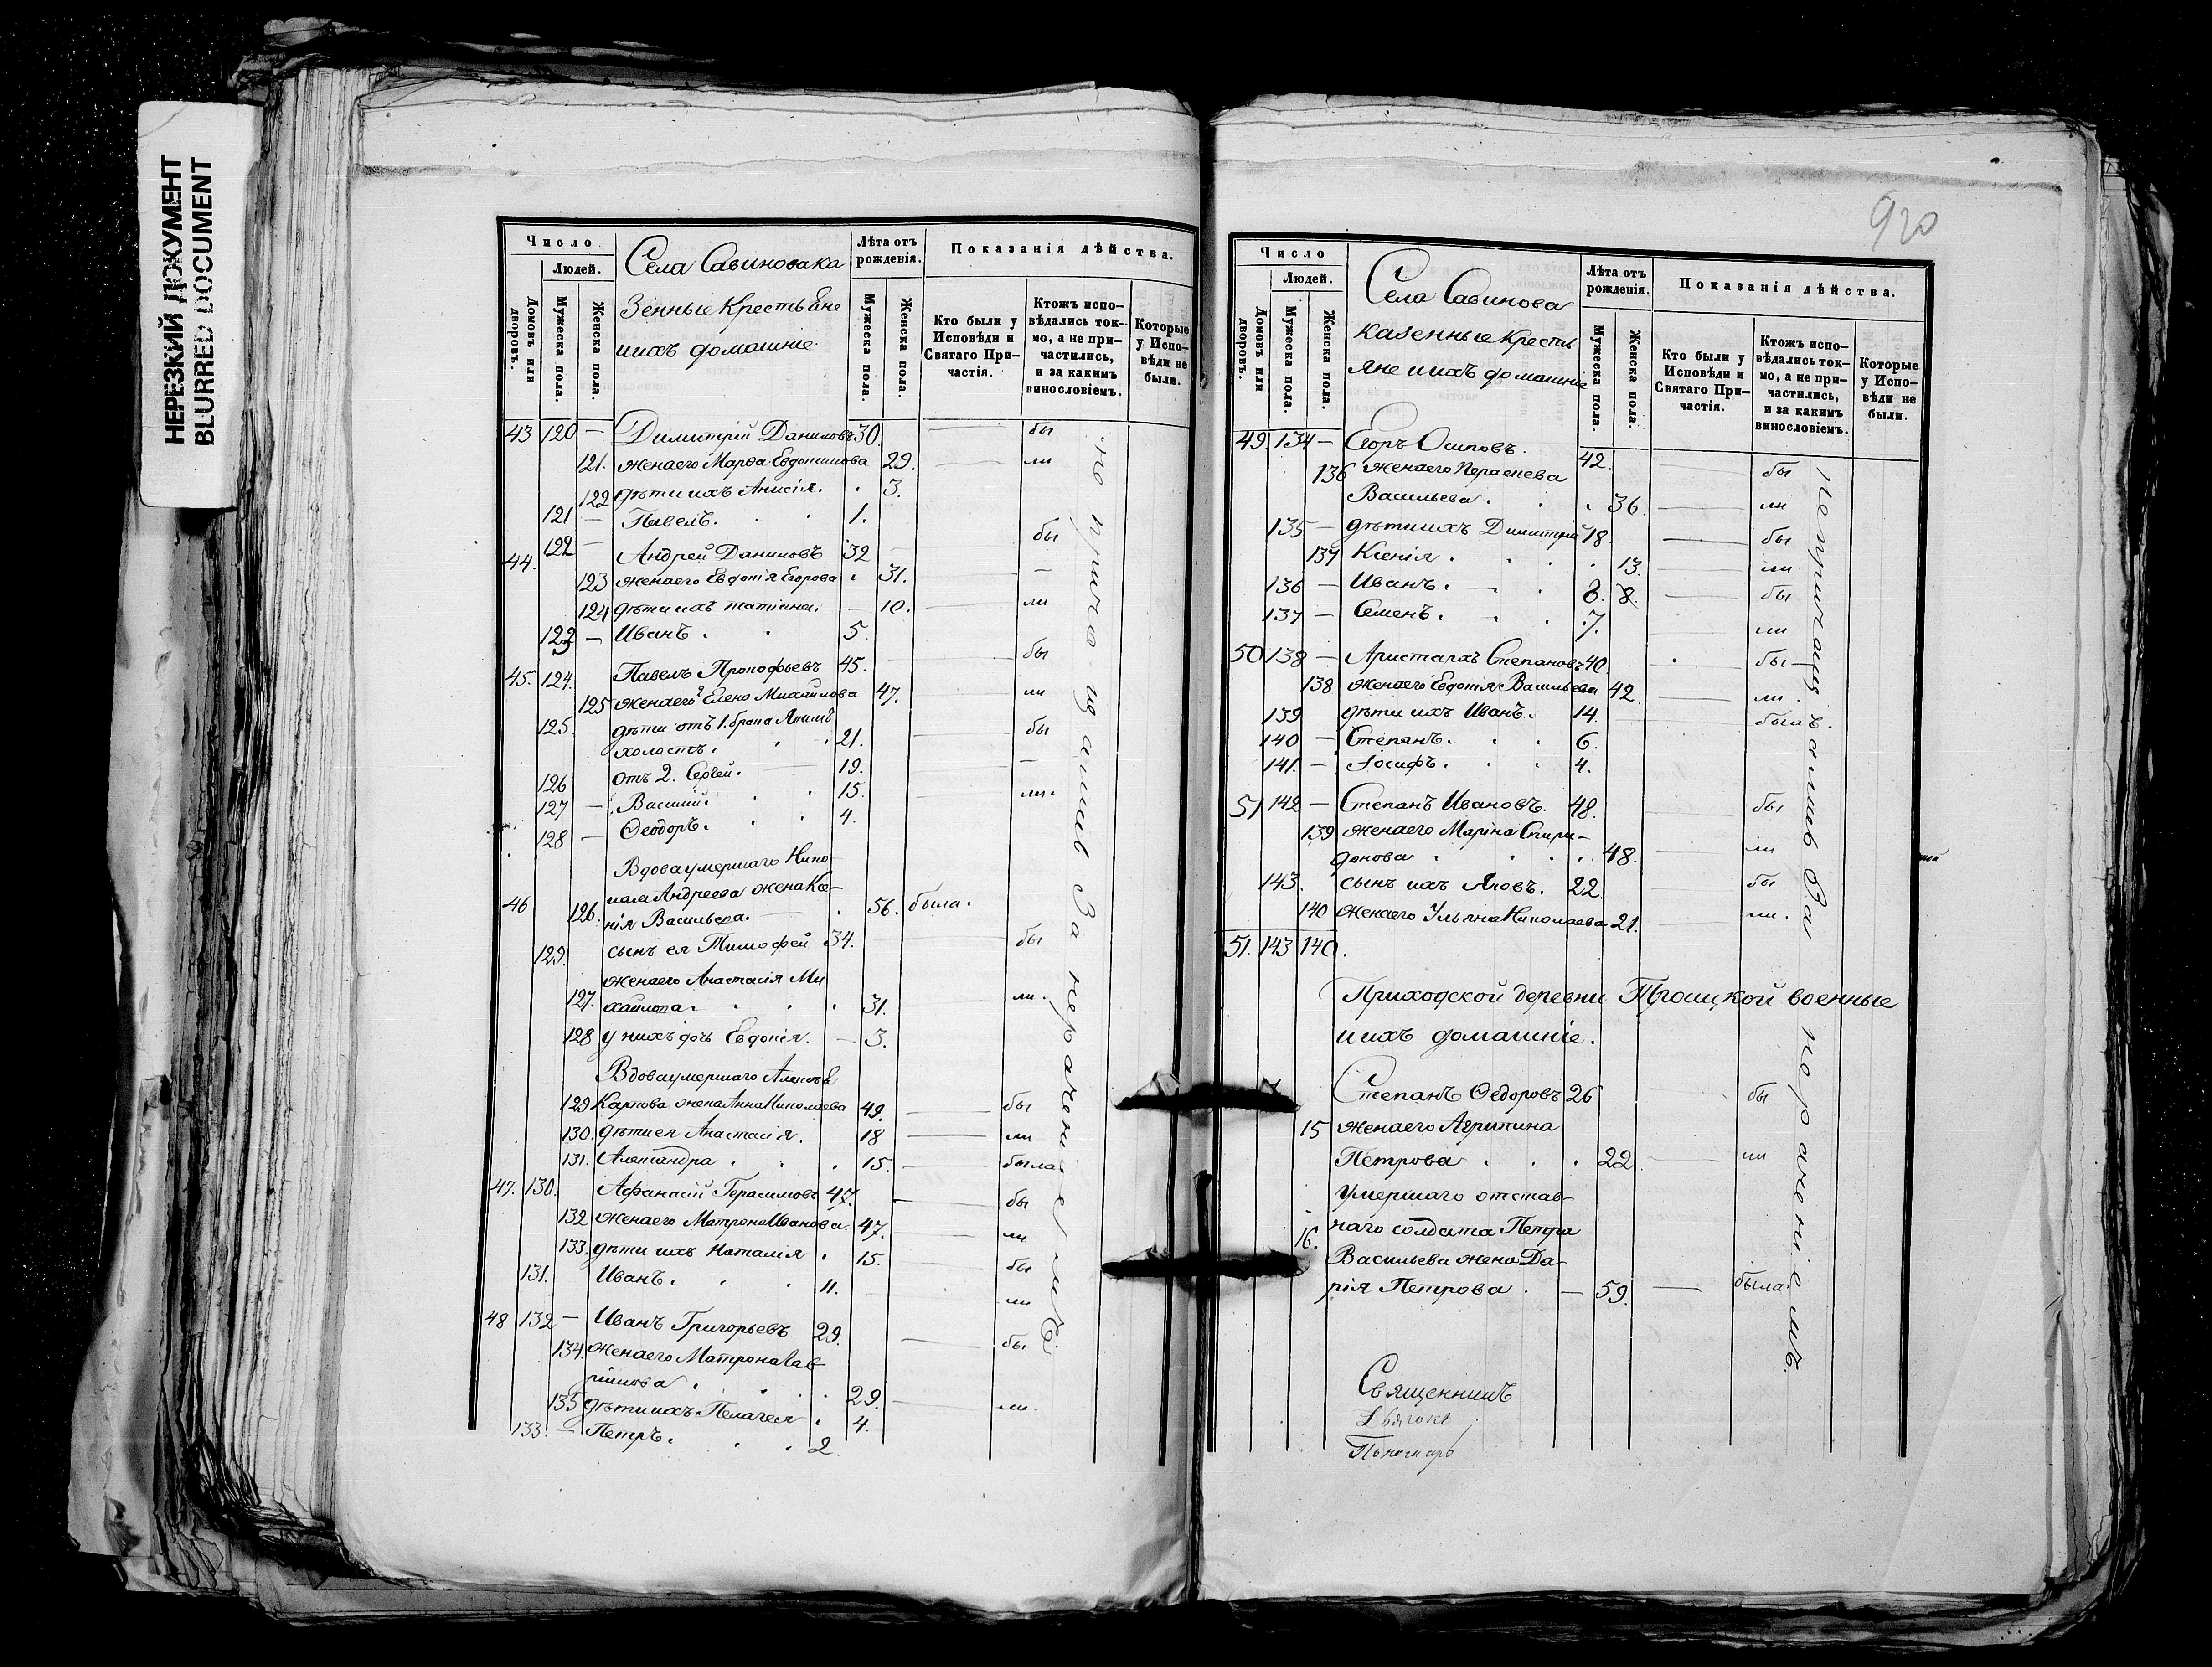 НЕРЕЗКИЙ ДОКУМЕНТ
BLURRED DOCUMENT
Число
Людей.
Домовъ или дворовъ.
Мужеска пола.
Женска пола.
Села Савинова ка
зенные Крестьяне
и ихъ домашніе.
Лѣта отъ рожденія.
Мужеска пола.
Женска пола.
Показанія дѣйства.
Кто были у Исповѣди и Святаго Причастія.
Ктожъ исповѣдались токмо, а не причастились, и за какимъ винословіемъ.
Которые у Исповѣди не были.
43 120 — Димитрій Даниловъ 30. — бы
121. жена его Марѳа Евдокимова 29. — ли
122 дѣти ихъ Анисія. 3.
121 — Павелъ. 1.
44. 122 — Андрей Даниловъ 32 бы
123 жена его Евдокія Егорова 31. —
124 дѣти ихъ Татіана. — 10. — ли
123 — Иванъ. 5.
45. 124. Павелъ Прокофьевъ 45. — бы
125 жена его Елена Михайлова 47. — ли
125. дѣти отъ 1. брака Акимъ
холостъ. 21. — бы
126 отъ 2. Сергѣй. — 19. —
127 — Василій. 15. — ли.
128 — Ѳеодоръ. 4.
Вдова умершаго Нико-
46 126. лая Андреева жена Ксе-
нія Васильева. — 56. была.
129. сынъ ея Тимофей 34. — бы
жена его Анастасія Ми
127. хайлова. 31. — ли.
128 у нихъ дочь Евдокія. — 3.
Вдова умершаго Алексѣя
129 Карпова жена Анна Николаева 49. — бы
130. дѣти ея Анастасія. 18 — ли
131. Александра. 15. — была
47. 130. Афанасій Герасимовъ 47. — бы
132 жена его Матрона Иванова. 47. — ли
133. дѣти ихъ Наталія. 15. бы
131. Иванъ. 11. ли
48 132 — Иванъ Григорьевъ 29. — бы
134. жена его Матрона Гав-
рилова. 29. — ли.
135 дѣти ихъ Пелагея. 4.
133. — Петръ. 2.
но причащались За нераченіемъ
920
Число
Людей.
Домовъ или дворовъ.
Мужеска пола.
Женска пола.
Села Савинова
казенные Кресть
яне и ихъ домашніе
Лѣта отъ рожденія.
Мужеска пола.
Женска пола.
Показанія дѣйства.
Кто были у Исповѣди и Святаго Причастія.
Ктожъ исповѣдались токмо, а не причастились, и за какимъ винословіемъ.
Которые у Исповѣди не были.
49. 134 — Егоръ Осиповъ. 42. — бы
136 жена его Параскева
Васильева. 36. — ли
135 — дѣти ихъ Димитрій 18. — бы
137 Ксенія. 13. — ли
136 — Иванъ. — 8. 8. — бы
137 — Семенъ. 7. — ли
50 138 — Аристархъ Степановъ 40. бы —
138 жена его Евдокія Васильева 42. — ли.
139 дѣти ихъ Иванъ. 14. — былъ.
140 — Степанъ. 6.
141. — Іосифъ. 4.
51 142 — Степанъ Ивановъ. 48. — бы
139 жена его Марина Спири-
донова. 48. — ли
143. сынъ ихъ Яковъ. 22. — бы
140 жена его Ульяна Николаева 21. — ли.
51. 143 140.
Приходской деревни Троицкой военные
и ихъ домашніе.
Степанъ Ѳедоровъ 26 бы
15 жена его Агрипина
Петрова. 22. — ли
умершаго отстав-
16. наго солдата Петра
Васильева жена Да-
рія Петрова. — 59. — была.
Священникъ
Пономарь
но причащались За нераченіемъ.